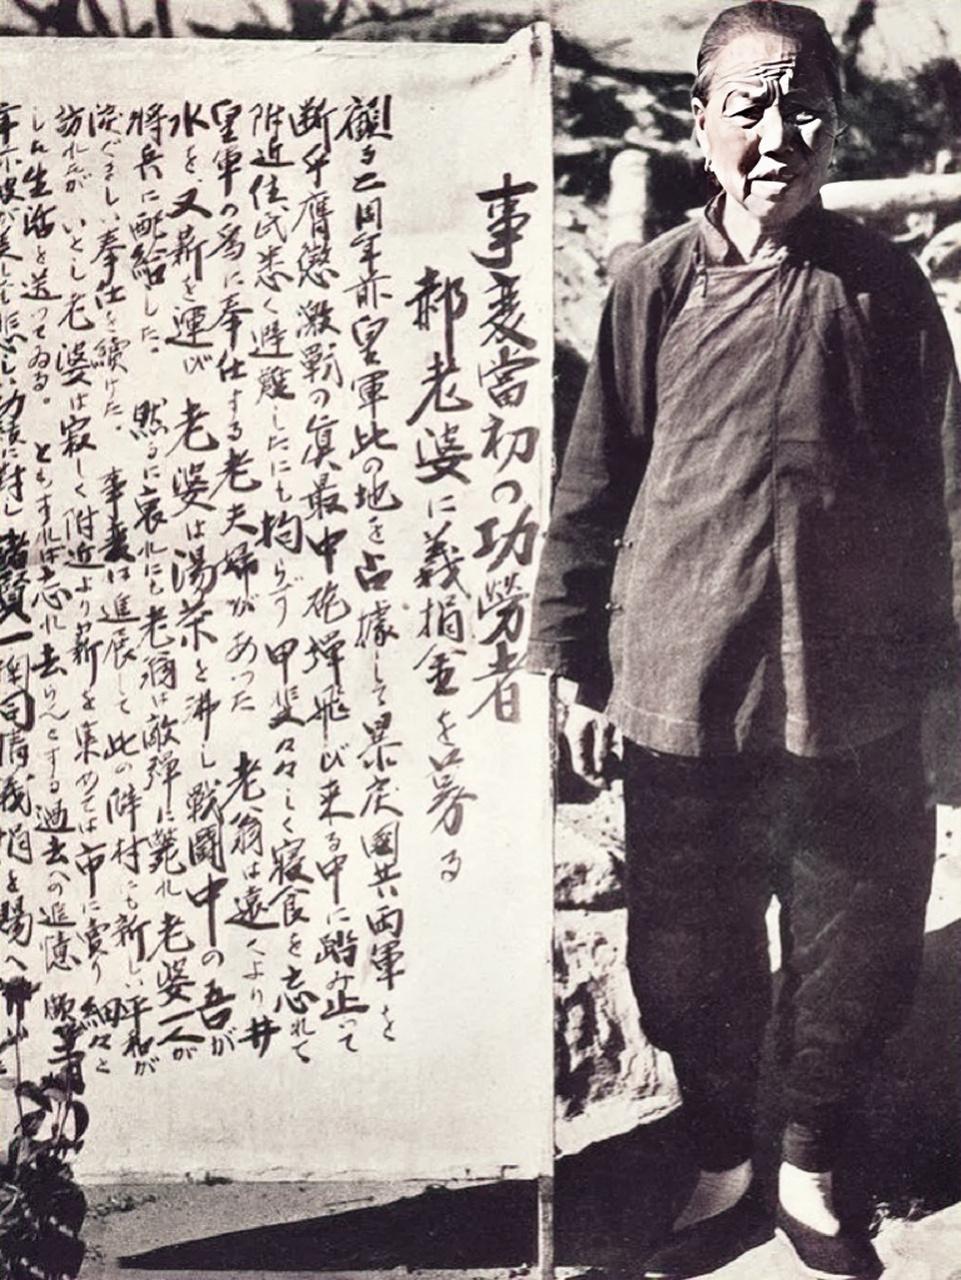 事変當初の功勞者
郝老婆に義捐金を募る
顧る二周年前皇軍此の地を占據して暴戻國共両軍を
断乎膺懲激戰の真最中砲弾飛び来る中に踏み止って
附近住民悉く避難したにも拘らず甲斐々々しく寝食を忘れて
皇軍の為に奉仕する老夫婦があった 老翁は遠くより井
水を、又薪を運び 老婆は湯茶を沸し戰闘中の吾が
將兵に配給した。 然るに哀れにも老翁は敵弾に斃れ老婆一人が
涙ぐましい奉仕を續けた。 事変は進展して此の僻村にも新しい平和が
訪れたが いとし老婆は寂しく附近より薪を集めては市に賣り細々と
しれ生活を送ってゐる。 ともすれば忘れ去らんとする過去への追憶
対し諸賢一 義捐を賜へ